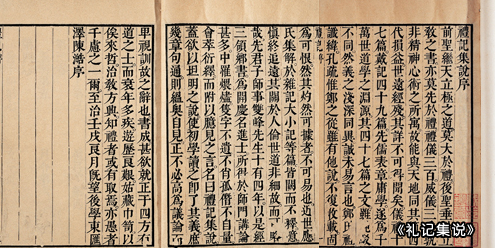 禮記集說序
前聖繼天立極之道莫大於禮後聖垂世立
教之書亦莫先於禮禮儀三百威儀三千孰
非精神心術之所寓故能與天地同其節四
代損益世遠經殘其詳不可得聞矣儀禮十
七篇戴記四十九篇先儒表章庸學遂爲千
萬世道學之淵源其四十七篇之文雖純
不同然義之淺深同異誠未易言也鄭氏祖
讖緯孔疏惟鄭之從雖有他說不復收載固
爲可恨然其灼然可據者不可易也近世應
氏集解於雜記大小記等篇皆闕而不釋噫
愼終追遠其關於人倫世道非細故而可略
哉先君子師事雙峰先生十有四年以是經
三領鄕書爲開慶名進士所得於師門講論
甚多中罹煨燼隻字不遺不肖孤僭不自量
會萃衍繹而附以臆見之言名曰禮記集說
蓋欲以坦明之說使初學讀之即了其義庶
幾章句通則蘊奧自見正不必高爲議論而
卑視訓故之辭也書成甚欲就正于四方有
道之士而衰年多疾遊歷良艱姑藏巾笥以
俟來哲治敎方興知禮者或有取焉亦愚者
千慮之一爾至治壬戌良月旣望後學東匯
澤陳澔序
《礼记集说》